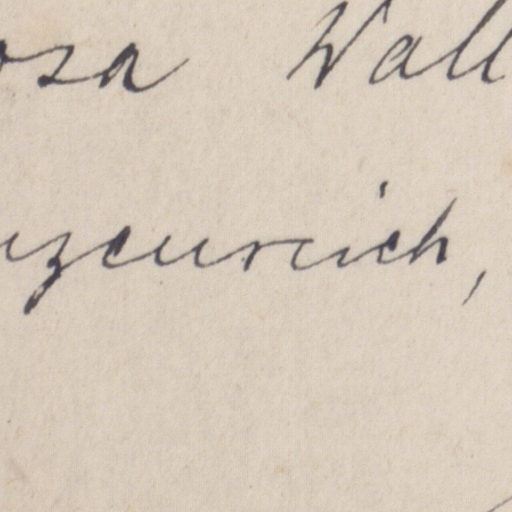 osa Wall
nzenreich,